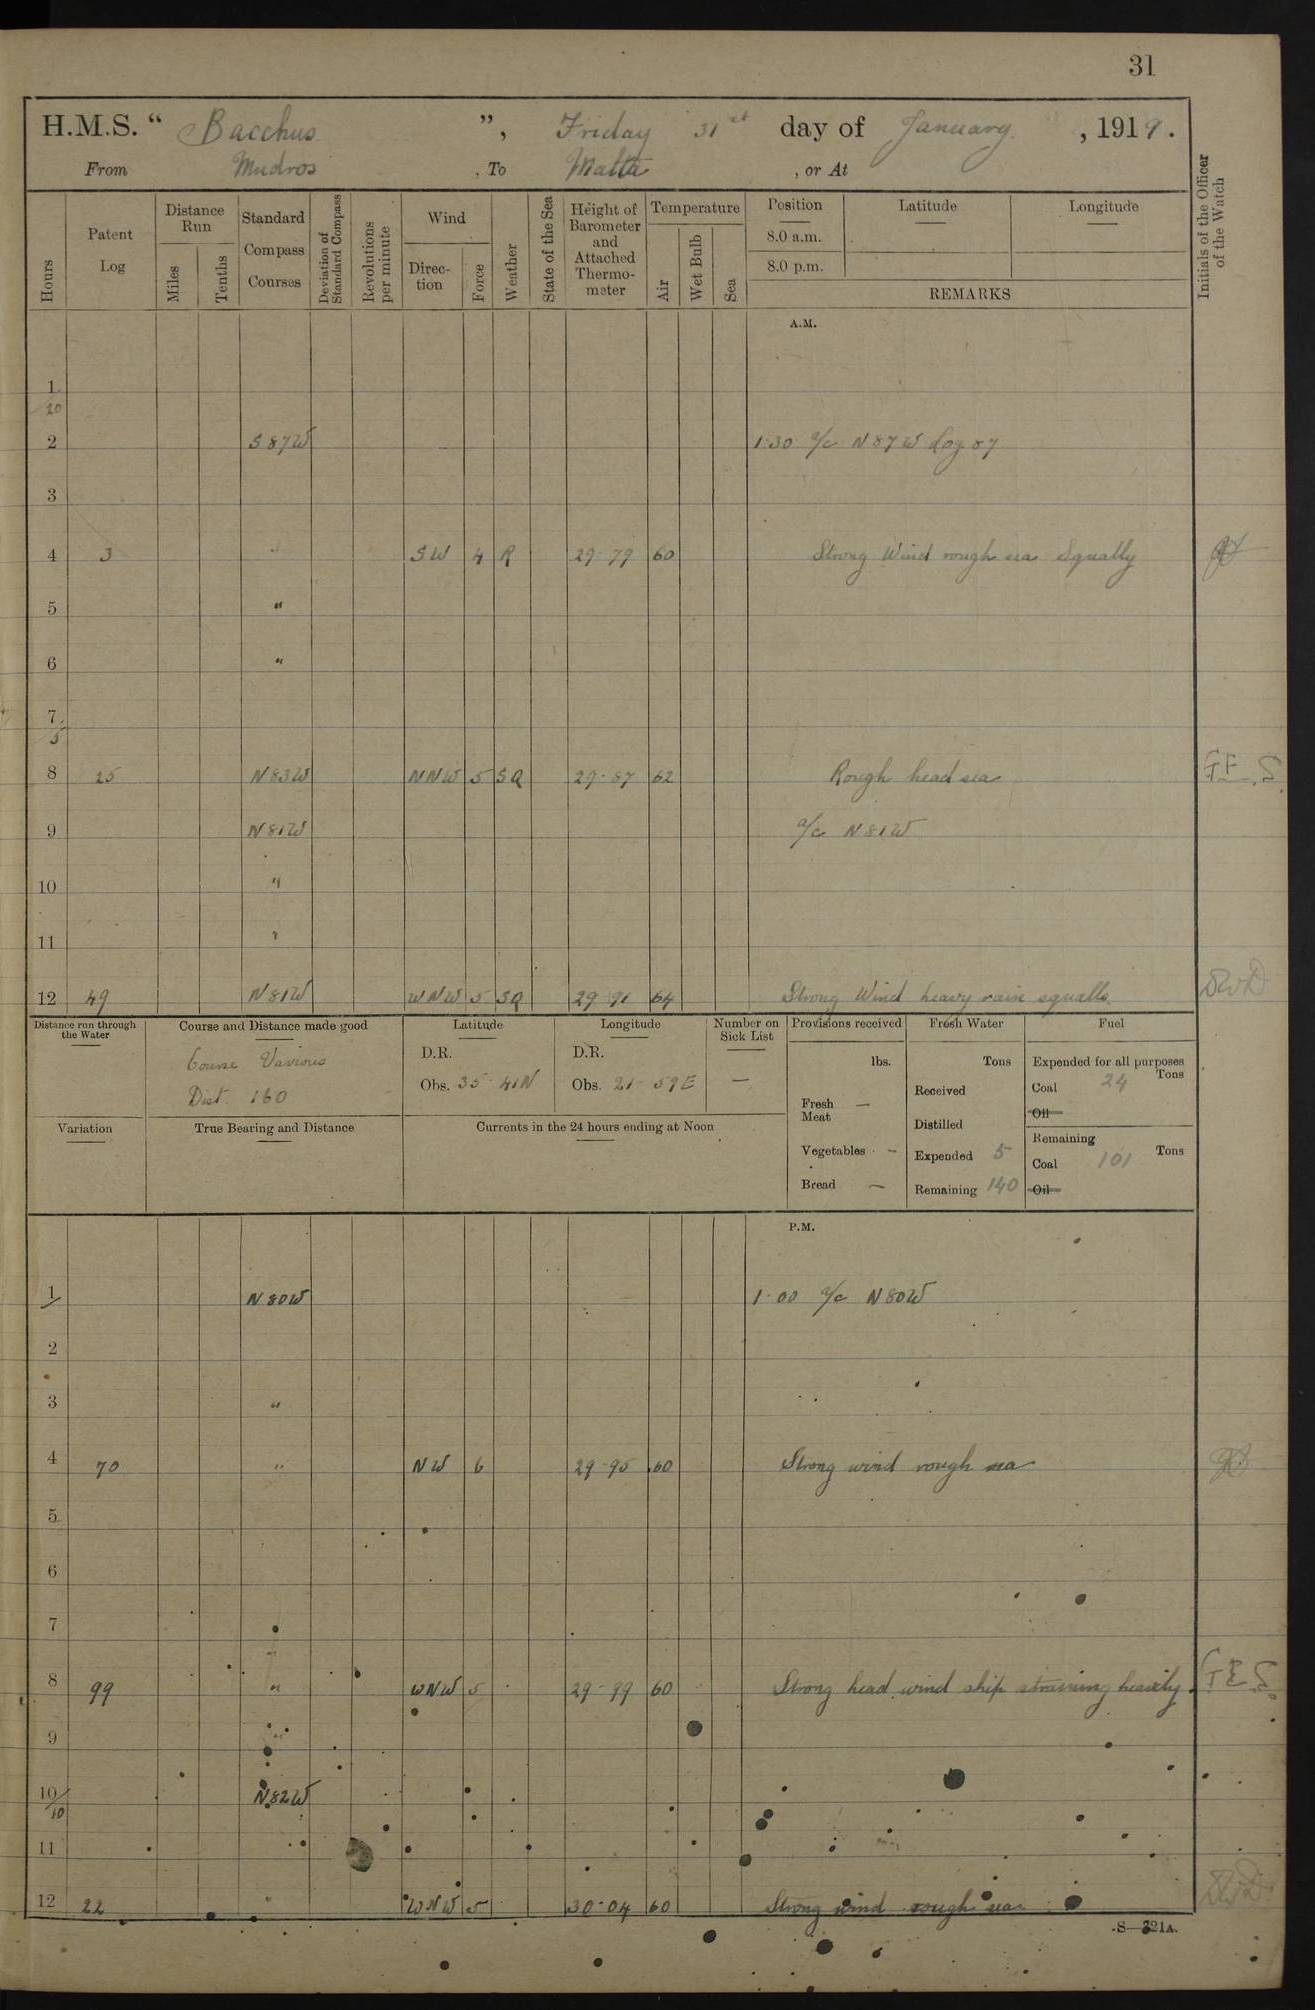 31
H.M.S. “ Bacchus ”, Friday 31st day of January, 1919.
From Mudros, To Malta, or At
Hours
Patent Log
Distance Run
Miles
Tenths
Standard Compass Courses
Deviation of Standard Compass
Revolutions per minute
Wind
Direction
Force
Weather
State of the Sea
Height of Barometer and Attached Thermometer
Temperature
Air
Wet Bulb
Sea
Position
8.0 a.m.
8.0 p.m.
Latitude
Longitude
REMARKS
Initials of the Officer of the Watch
A.M.
1
20
2 S 87 W 1.30 a/c N 87 W Log 87
3
4 3 " SW 4 R 29-79 60 Strong Wind rough sea Squally
5 "
6 "
7
5
8 25 N 83 W NNW 5 SQ 29-87 62 Rough head sea G.F.S.
9 N 81 W a/c N 81 W
10 "
11 "
12 49 N 81 W WNW 5 SQ 29 91 64 Strong Wind heavy rain squalls.
Distance run through the Water
Course and Distance made good
Course Various
Dist. 160
Latitude
D.R.
Obs. 35 41 N
Longitude
D.R.
Obs. 21-59 E
Number on Sick List
—
Provisions received
lbs.
Fresh Meat —
Vegetables —
Bread —
Fresh Water
Tons
Received
Distilled
Expended 5
Remaining 140
Fuel
Expended for all purposes
Tons
Coal 24
Oil
Remaining
Tons
Coal 101
Oil
Variation
True Bearing and Distance
Currents in the 24 hours ending at Noon
P.M.
1 N 80 W 1.00 a/c N 80 W
2
3 "
4 70 " NW 6 29-95 60 Strong wind rough sea
5
6
7
8 99 " WNW 5 29-99 60 Strong head wind ship straining heavily.
9
10 N 82 W
10
11
12 22 " WNW 5 30-04 60 Strong wind rough sea
S—321A.